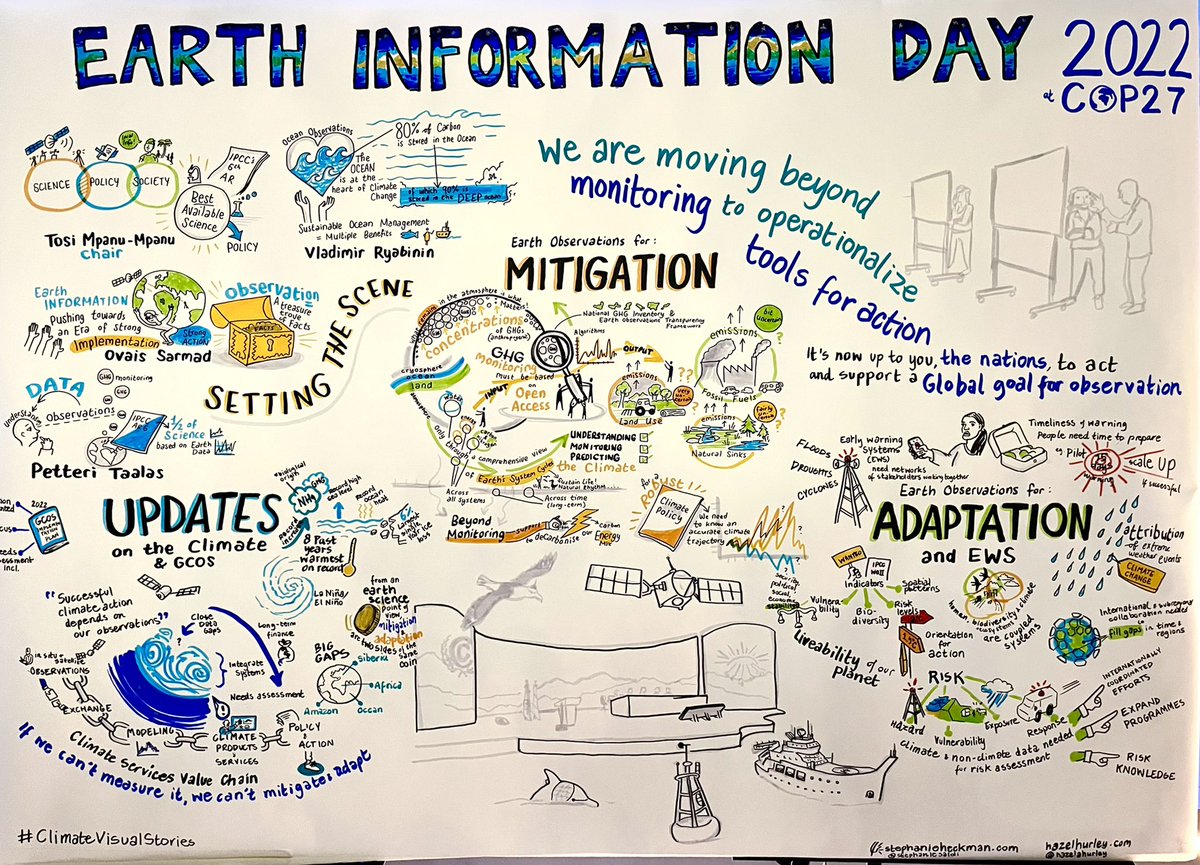 EARTH INFORMATION DAY 2022
at COP27
SCIENCE
POLICY
SOCIETY
IPCC's
6th
AR
Best
Available
Science
POLICY
Tosi Mpanu-Mpanu
Chair
Ocean Observations
The
OCEAN
is at the
heart of Climate
Change
80% of Carbon
is stored in the Ocean
of which 90% is
stored in the DEEP ocean
Sustainable Ocean Management
= Multiple Benefits
Vladimir Ryabinin
Earth
INFORMATION
pushing towards
an Era of Strong
Implementation
Strong
ACTION
Ovais Sarmad
Observation =
A treasure
trove of
Facts
FACTS
DATA
GHG monitoring
GHG
understand
Observations
IPCC
AR6
1/2
of Science
based on Earth
Data
Petteri Taalas
SETTING THE SCENE
We are moving beyond
monitoring to operationalize
tools for action
It's now up to you, the nations, to act
and support a Global goal for observation
Earth Observations for:
MITIGATION
in the atmosphere is what
Matters
concentrations
of GHGs
(anthropogenic)
GHG
monitoring
must be based
on
Open
Access
INPUT
cryosphere
ocean
land
Only
through a comprehensive view
of Earth's System Cycles
National GHG Inventory &
Earth observations Transparency
Framework
Algorithms
OUTPUT
emissions
Land Use
emissions
bit
uncertain
Fossil Fuels
emissions
Fairly
Natural Sinks
UNDERSTANDING
MONITORING
PREDICTING
the Climate
Sustain Life!
Natural rhythm
Across
all Systems
Across time
(long-term)
Beyond
Monitoring
support
to decarbonise
our
Energy
Mix
carbon
for robust
Climate
Policy
We need
to know an
accurate climate
trajectory
UPDATES
on the Climate
& GCOS
2022
GCOS
PLAN
incl.
Record high
sea level
Record
ocean heat
6%
8 Past
years
warmest
on record
La Niña/
El Niño
from an
earth
science
point of
view,
mitigation
&
adaptation
are two
sides of the
same
coin
"Successful
climate action
depends on
our observations"
Close
Data
Gaps
?
Integrate
Systems
Long-term
finance
Needs assessment
BIG
GAPS
Siberia
Africa
Amazon
Ocean
in situ + satellite
OBSERVATIONS
EXCHANGE
MODELING
CLIMATE
PRODUCTS
SERVICES
POLICY
ACTION
Climate Services Value Chain
If we can't measure it, we can't mitigate & adapt
FLOODS
DROUGHTS
CYCLONES
Early warning
Systems
(EWS)
need networks
of stakeholders working together
Timeliness of warning
People need time to prepare
eg Pilot
15
days
warning
scale UP
if successful
Earth Observations for:
ADAPTATION
and EWS
attribution
of extreme
weather events
CLIMATE
CHANGE
WANTED
Indicators
IPCC
WGII
Spatial
patterns
Vulnera-
bility
Bio-
diversity
Risk
levels
1.5°
Orientation
for
action
human, biodiversity & climate
ecosystems
are coupled
systems
International & subregional
collaboration needed
to
fill gaps in time &
regions
security
political
social
economic
stability
Liveability of our
planet
RISK
Hazard
Vulnerability
Exposure
Response
climate & non-climate data needed
for risk assessment
INTERNATIONALLY
COORDINATED
EFFORTS
EXPAND
PROGRAMMES
RISK
KNOWLEDGE
#ClimateVisualStories
stephanieheckman.com
hazelhurley.com
@hazelahurley